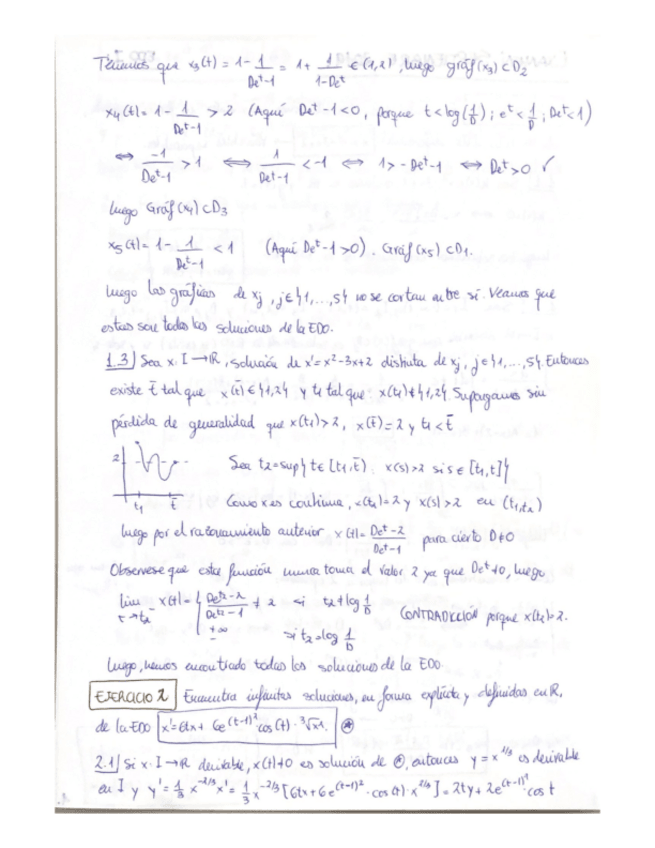 Tenemos que x₃(t) = 1 - 1/(Deᵗ-1) = 1 + 1/(1-Deᵗ) ∈ (1,2), luego gráf(x₃) ⊂ D₂
x₄(t) = 1 - 1/(Deᵗ-1) > 2 (Aquí Deᵗ-1<0, porque t<log(1/D); eᵗ<1/D; Deᵗ<1)
⇔ -1/(Deᵗ-1) > 1 ⇔ 1/(Deᵗ-1) < -1 ⇔ 1 > -Deᵗ-1 ⇔ Deᵗ>0 ✓
luego Gráf(x₄) ⊂ D₃
x₅(t) = 1 - 1/(Deᵗ-1) < 1 (Aquí Deᵗ-1>0). Gráf(x₅) ⊂ D₁.
luego las gráficas de xj, j∈{1,...,5} no se cortan entre sí. Veamos que
estas son todas las soluciones de la EDO.
1.3 Sea x: I→ℝ, solución de x'=x²-3x+2 distinta de xj, j∈{1,...,5}. Entonces
existe t̄ tal que x(t̄)∈{1,2} y t₁ tal que x(t₁)∉{1,2}. Supongamos sin
pérdida de generalidad que x(t₁)>2, x(t̄)=2 y t₁<t̄
2 t₁ t̄ Sea t₂=sup{t∈[t₁,t̄): x(s)>2 si s∈[t₁,t]}
Como x es continua, x(t₂)=2 y x(s)>2 en (t₁,t₂)
luego por el razonamiento anterior, x(t)= (Deᵗ-2)/(Deᵗ-1) para cierto D≠0
Observese que esta función nunca toma el valor 2 ya que Deᵗ≠0, luego
lim t→t₂⁻ x(t) = { (De^t₂-2)/(De^t₂-1) ≠ 2 si t₂≠log 1/D CONTRADICCIÓN porque x(t₂)=2.
+∞ si t₂=log 1/D
luego, hemos encontrado todas las soluciones de la EDO
EJERCICIO 2 Encuentra infinitas soluciones, en forma explícita y definidas en ℝ,
de la EDO x'=6tx+6e^(t-1)² cos(t)·³√x². ⊛
2.1 Si x: I→ℝ derivable, x(t)≠0 es solución de ⊛, entonces y=x^1/3 es derivable
en I y y'=1/3 x^-2/3 x'=1/3 x^-2/3 [6tx+6e^(t-1)²·cos(t)·x^2/3]=2ty+2e^(t-1)² cos t